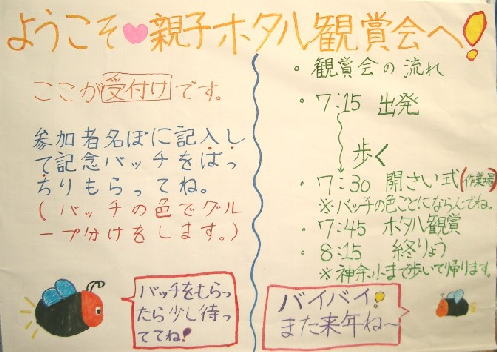 ようこそ♥親子ホタル観賞会へ!
ここが受付けです。
参加者名ぼに記入し
て記念バッチをばっ
ちりもらってね。
(バッチの色でグル
ープ分けをします。)
バッチをもらっ
たら少し待っ
ててね!
・観賞会の流れ
・7:15 出発
歩く
・7:30 開さい式(作業場)
※バッチの色ごとにならんでね。
・7:45 ホタル観賞
・8:15 終りょう
※神奈小まで歩いて帰ります。
バイバイ!
また来年ね〜